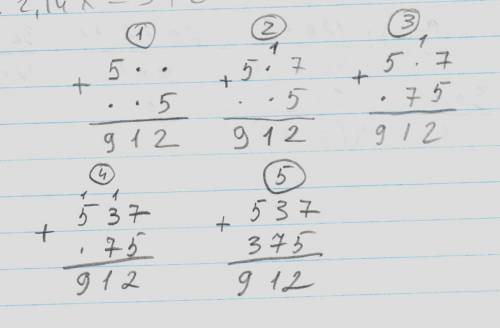 2,14
① ② ③
1 1
+ 5 · · + 5 · 7 + 5 · 7
· · 5 · · 5 · 7 5
9 1 2 9 1 2 9 1 2
④ ⑤
1 1
+ 5 3 7 + 5 3 7
· 7 5 3 7 5
9 1 2 9 1 2